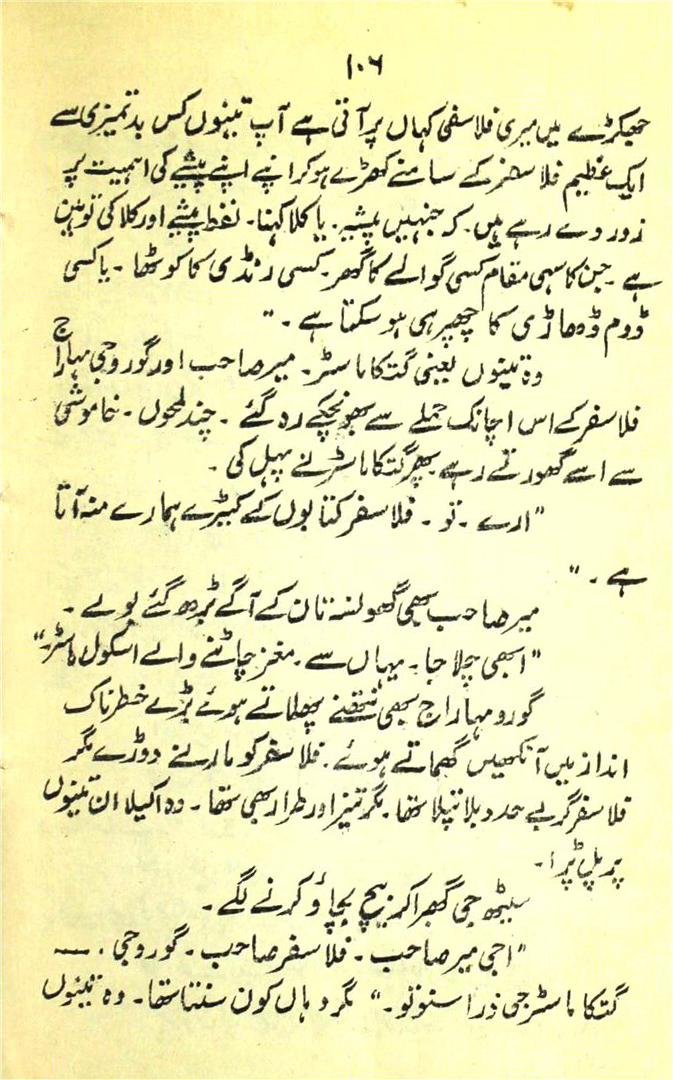 ۱۰۶
جھیکڑے میں میری فلاسفی کہاں پر آتی ہے آپ تینوں کس بدتمیزی سے
ایک عظیم فلاسفر کے سامنے کھڑے ہو کر اپنے اپنے پیشے کی اہمیت پر
زور دے رہے ہیں۔ کہ جنہیں پیشہ۔ یا کلا کہنا۔ لفظ پیشے اور کلا کی توہین
ہے۔ جن کا سہی مقام کسی گوالے کا گھر۔ کسی رنڈی کا کوٹھا۔ یا کسی
ڈوم ڈھاڑی کا چھپر ہی ہو سکتا ہے۔"
وہ تینوں یعنی گتکا ماسٹر۔ میر صاحب اور گورو جی مہاراج
فلاسفر کے اس اچانک حملے سے بھونچکے رہ گئے۔ چند لمحوں۔ خاموشی
سے اسے گھورتے رہے۔ پھر گتکا ماسٹر نے پہل کی۔
"ارے۔ تو۔ فلاسفر کتابوں کے کیڑے ہمارے منہ آتا
ہے۔"
میر صاحب بھی گھونسہ تان کے آگے بڑھ گئے بولے۔
"ابھی چلا جا۔ یہاں سے۔ مغز چاٹنے والے اسکول ماسٹر"
گورو مہاراج بھی نتھنے پھلاتے ہوئے بڑے خطرناک
انداز میں آنکھیں گھماتے ہوئے۔ فلاسفر کو مارنے دوڑے مگر
فلاسفر گر بے حد دبلا پتلا تھا۔ مگر تیز اور طرار بھی تھا۔ وہ اکیلا ان تینوں
پر پل پڑا۔
سیٹھ جی گھبرا کر بیچ بچاؤ کرنے لگے۔
"اجی میر صاحب۔ فلاسفر صاحب۔ گورو جی۔ —
گتکا ماسٹر جی ذرا سنو تو۔" مگر وہاں کون سنتا تھا۔ وہ تینوں